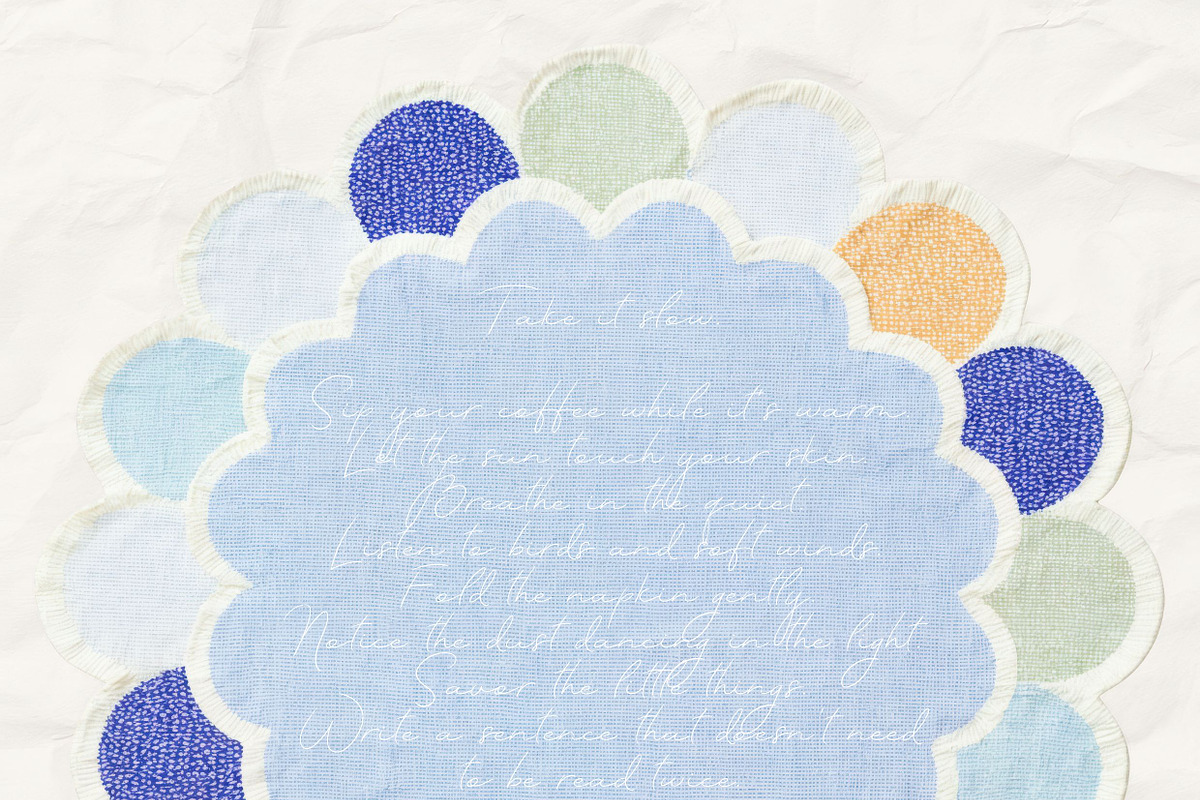 Take it slow.
Sip your coffee while it's warm
Let the sun touch your skin.
Breathe in the quiet
Listen to birds and soft winds
Fold the napkin gently
Notice the dust dancing in the light
Savor the little things
Write a sentence that doesn't need
to be read twice.